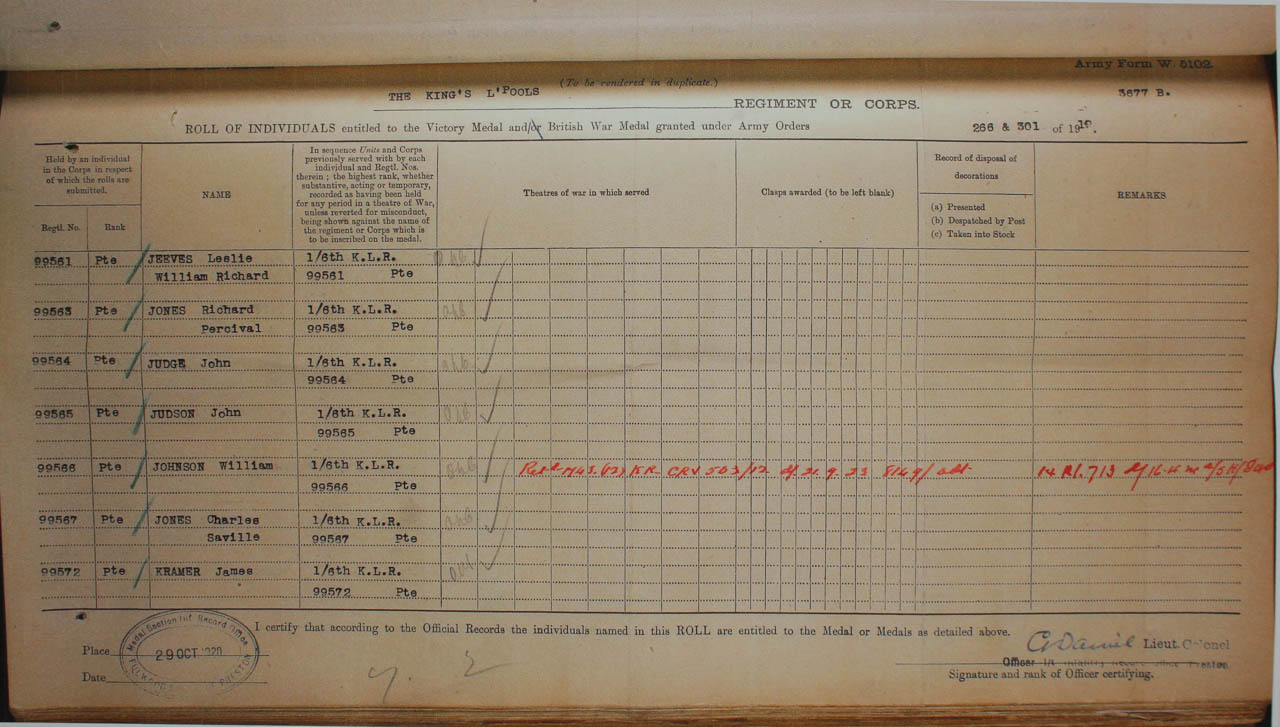 Army Form W. 5102.
(To be rendered in duplicate.)
3677 B.
THE KING'S L'POOLS REGIMENT OR CORPS.
ROLL OF INDIVIDUALS entitled to the Victory Medal and/or British War Medal granted under Army Orders 266 & 301 of 1919.
Held by an individual
in the Corps in respect
of which the rolls are
submitted.
Regtl. No.
Rank
NAME
In sequence Units and Corps
previously served with by each
individual and Regtl. Nos.
therein ; the highest rank, whether
substantive, acting or temporary,
recorded as having been held
for any period in a theatre of War,
unless reverted for misconduct,
being shown against the name of
the regiment or Corps which is
to be inscribed on the medal.
Theatres of war in which served
Clasps awarded (to be left blank)
Record of disposal of
decorations
(a) Presented
(b) Despatched by Post
(c) Taken into Stock
REMARKS
99561 Pte JEEVES Leslie 1/6th K.L.R.
William Richard 99561 Pte
99563 Pte JONES Richard 1/6th K.L.R.
Percival 99563 Pte
99564 Pte JUDGE John 1/6th K.L.R.
99564 Pte
99565 Pte JUDSON John 1/6th K.L.R.
99565 Pte
99566 Pte JOHNSON William 1/6th K.L.R. 21. 9. 23
99566 Pte
99567 Pte JONES Charles 1/6th K.L.R.
Saville 99567 Pte
99572 Pte KRAMER James 1/6th K.L.R.
99572 Pte
I certify that according to the Official Records the individuals named in this ROLL are entitled to the Medal or Medals as detailed above.
Medal Section Inf Record Office
29 OCT 1920
PRESTON
Place
Date
Lieut. Colonel
Officer i/c Infantry Record Office Preston.
Signature and rank of Officer certifying.